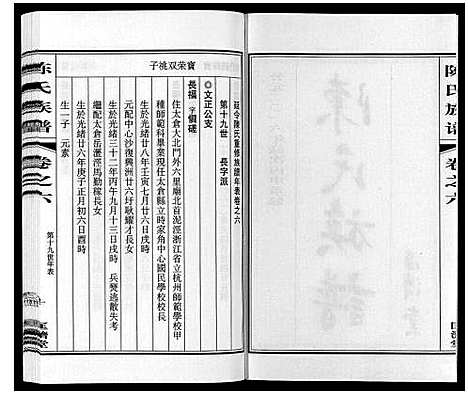 陳氏族譜
卷之六
延令陳氏重修族譜年表卷之六
第十九世 長字派
◎文正公支
長福 字個磋
住太倉大北門外六里廟北首泥涇浙江省立杭州師範學校甲
種師範科畢業現任太倉縣立時家角中心國民學校校長
生於光緒廿八年壬寅七月廿六日戌時
元配中心沙復興洲廿六圩耿耀才長女
生於光緒三十二年丙午九月十三日戌時 兵燹逃散失考
繼配太倉岳瀝涇馬勤稼長女
生於光緒廿六年庚子正月初六日酉時
生一子 元素
寶榮双祧子
陳氏族譜
卷之六
第十九世年表